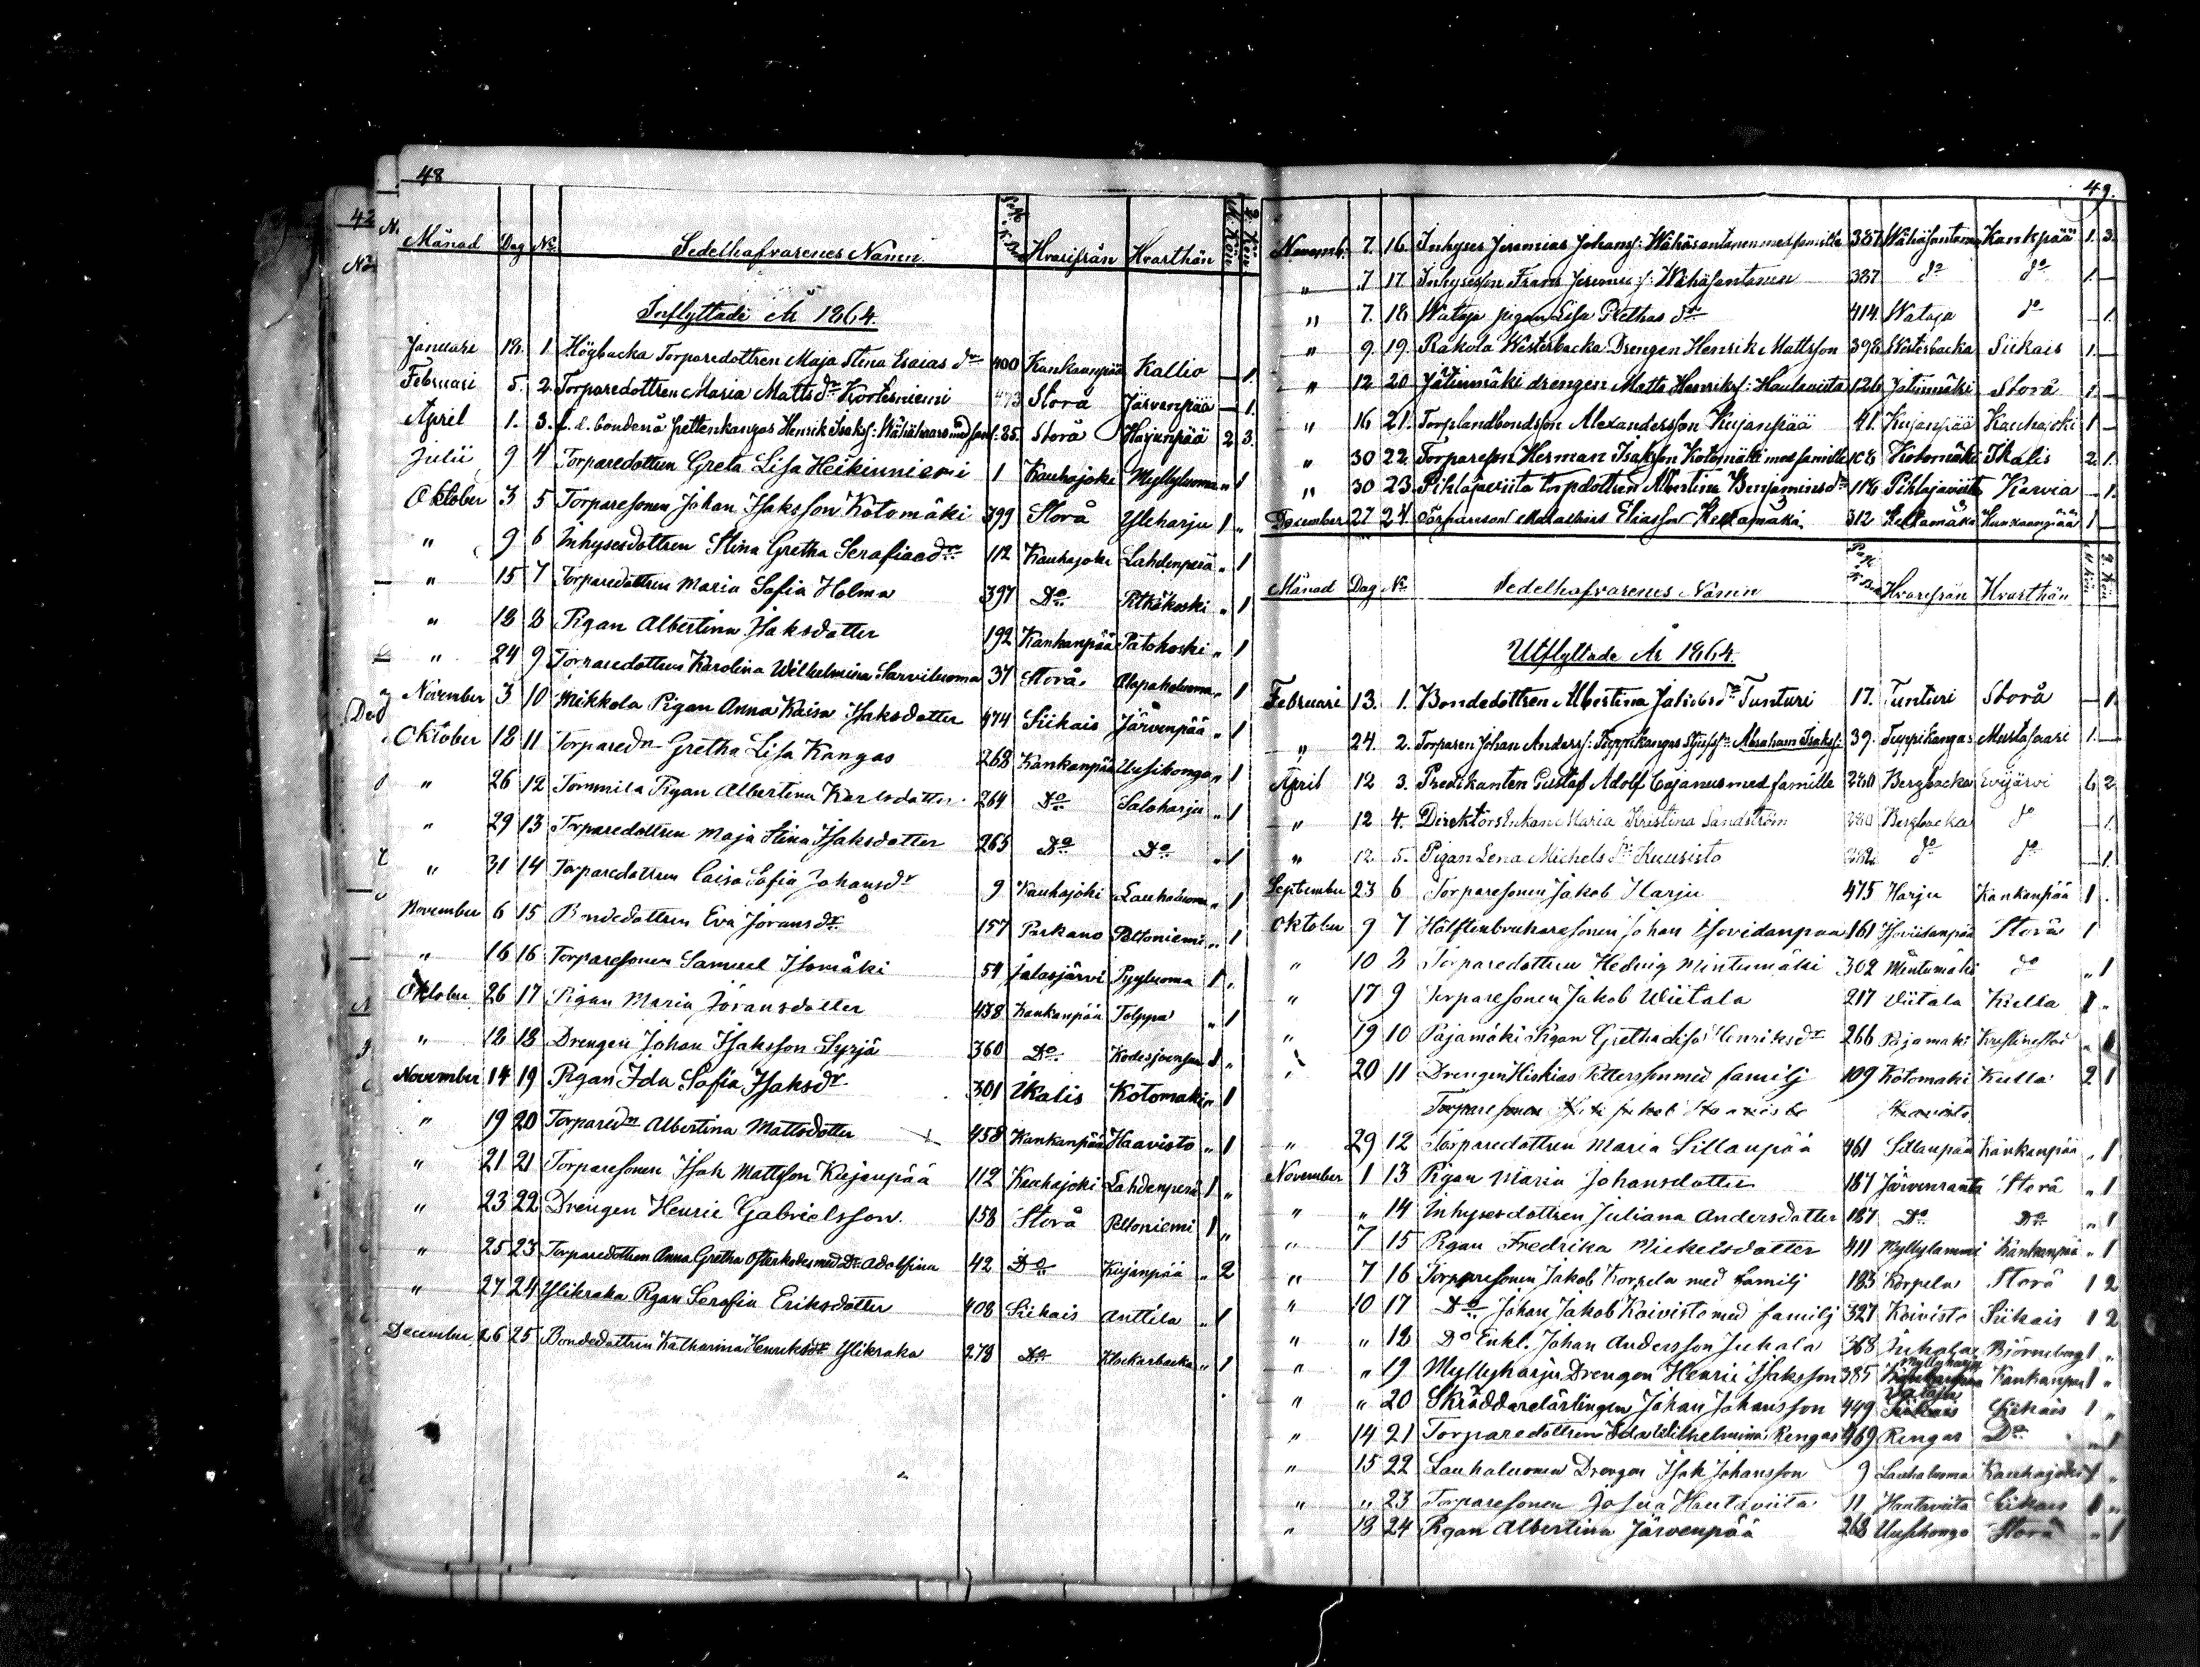 48
Månad Dag No. Sedelhafvarenes Namn Pag. i K. Boken Hvarifrån Hvarthän M. Kön Q. Kön
Inflyttade År 1864.
Januari 18. 1. Högbacka Torparedottren Maja Stina Esaias dr 400 Kankaanpää Kallio — 1.
Februari 5. 2. Torparedottren Maria Matts dr Kortesniemi 473 Storå Järvenpää — 1.
April 1. 3. f. d. bonden å Henrik Isaks: med fam: 35. Storå Harjunpää 2 3.
Julii 9 4 Torparedottren Greta Lisa Heikinniemi 1 Kauhajoki Myllyluoma " 1
Oktober 3 5 Torparesonen Johan Isaksson Kotomäki 399 Storå Yleharju 1 "
" 9 6 Inhysesdottren Stina Gretha Serafiaadr 112 Kauhajoki Lahdenperä " 1
" 15 7 Torparedottren Maria Sofia Holma 397 Do Pitkäkoski " 1
" 18 8 Pigan Albertina Isaksdotter 192 Kankanpää Patokoski " 1
" 24 9 Torparedottren Karolina Wilhelmina Sarviluoma 37 Storå " 1
November 3 10 Mikkola Pigan Anna Kaisa Isaksdotter 474 Siikais Järvenpää " 1
Oktober 18 11 Torparedn Gretha Lisa Kangas 268 Kankanpää Uusikongo " 1
" 26 12 Tommila Pigan Albertina Karlsdotter 264 Do Saloharju " 1
" 29 13 Torparedottren Maja Stina Isaksdotter 265 Do Do " 1
" 31 14 Torparedottren Caisa Sofia Johansdr 9 Kauhajoki Lauhaluoma " 1
November 6 15 Bondedottren Eva Joransdr 157 Parkano Peltoniemi " 1
" 16 16 Torparesonen Samuel Isomäki 54 Jalasjärvi Pyyluoma 1 "
Oktober 26 17 Pigan Maria Joransdotter 458 Kankanpää Tolppa " 1
" 18 18 Drengen Johan Isaksson Syrjä 360 Do 1 "
November 14 19 Pigan Ida Sofia Isaksdr 301 Ikalis Kotomäki " 1
" 19 20 Torparedn Albertina Mattsdotter 458 Kankanpää Haavisto " 1
" 21 21 Torparesonen Isak Mattsson Kujanpää 112 Kauhajoki Lahdenperä 1 "
" 23 22 Drengen Henric Gabrielsson. 158 Storå Peltoniemi 1 "
" 25 23 Torparedottren Anna Gretha med Dr Adolfina 42 Do Kujanpää " 2
" 27 24 Ylikraka Pigan Serafia Eriksdotter 408 Siikais Anttila " 1
December 26 25 Bondedottren Katharina Henriksdr Ylikraka 278 Do Klockarbacka " 1
49.
Novemb: 7. 16. Inhyses Jeremias Johans: Wähäsantanen med familie 387 Wähäsantanen Kankpää 1. 3.
" 7 17. Inhysesson Frans Jeremias: Wähäsantanen 387 do do 1. —
" 7. 18 Wataja pigan Lisa dr 414 Wataja do — 1.
" 9 19. Rakola Westerbacka Drengen Henrik Mattsson 398 Westerbacka Siikais 1. —
" 12 20 Jätinmäki drengen Matts Henriks: Hautaviita 126 Jätinmäki Storå 1. —
" 16 21. Torplandbondsson Alexandersson Kujanpää 41. Kujanpää Kauhajoki 1 —
" 30 22 Torpareson Herman Isaksson Kotomäki med familie 108 Kotomäki Ikalis 2 1.
" 30 23. Pihlajaviita torpdottren Albertina Benjaminsdr 116 Pihlajaviita Karvia — 1.
December 27 24 Torpareson Malachias Eliasson Keltamäki 312 Keltamäki Kankaanpää 1 —
Månad Dag No. Sedelhafvarenes Namn Pag. i K. Boken Hvarifrån Hvarthän M. Kön Q. Kön
Utflyttade År 1864.
Februari 13. 1. Bondedottren Albertina Jakobs dr Tunturi 17. Tunturi Storå — 1
" 24. 2. Torparen Johan Anders: Teppikangas Abraham Isaks: 39. Teppikangas Mustasaari 1. —
April 12 3. Predikanten Gustaf Adolf Cajanus med familie 280 Bergbacka Evijärvi 6 2
" 12 4. Direktörs Enkan Maria Kristina Sandström 280 Bergbacka do — 1.
" 12 5. Pigan Lena Michels dr Kuusisto do do — 1.
September 23 6 Torparesonen Jakob Harju 475 Harju Kankanpää 1 .
Oktober 9 7 Hälftenbrukaresonen Johan 161 Storå 1
" 10 8 Torparedottren Hedvig Mintumäki 302 Mintumäki do " 1
" 17 9 Torparesonen Jakob Wiitala 217 Viitala Kiella 1 "
" 19 10 Pajamäki Pigan Gretha Lisa Henriksdr 266 Pajamäki Kristinestad " 1
" 20 11 Drengen Hiskias Pettersson med familj 109 Kotomäki Kulla 2 1
Torparesonen
" 29 12 Torparedottren Maria Sillanpää 461 Sillanpää Kankanpää " 1
November 1 13 Pigan Maria Johansdotter 187 Järvenranta Storå " 1
" " 14 Inhysesdottren Juliana Andersdotter 187 Do Do " 1
" 7 15 Pigan Fredrika Mickelsdotter 411 Myllylammi Kankanpää " 1
" 7 16 Torparesonen Jakob Korpela med familj 183 Korpela Storå 1 2
" 10 17 Do Johan Jakob Koivisto med familj 327 Koivisto Siikais 1 2
" " 18 Do Enkl. Johan Andersson Juhala 368 Juhala Björneborg 1 "
" " 19 Myllyharju Drengen Henric Isaksson 385 Myllyharju Kankanpää 1 "
" " 20 Skräddarelärlingen Johan Johansson 449 Vataja Siikais 1 "
" 14 21 Torparedottren Ida Wilhelmina Rengas 469 Rengas Do " 1
" 15 22 Lauhaluoma Drengen Isak Johansson 9 Lauhaluoma Kauhajoki 1 "
" " 23 Torparesonen Josua Hautaviita 11 Hautaviita Siikais 1 "
" 18 24 Pigan Albertina Järvenpää 268 Uusikongo Storå " 1